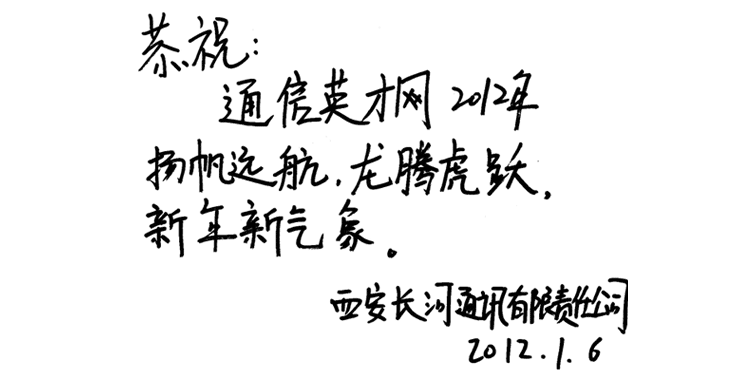 恭祝:
通信英才网2012年
扬帆远航,龙腾虎跃,
新年新气象。
西安长河通讯有限责任公司
2012.1.6